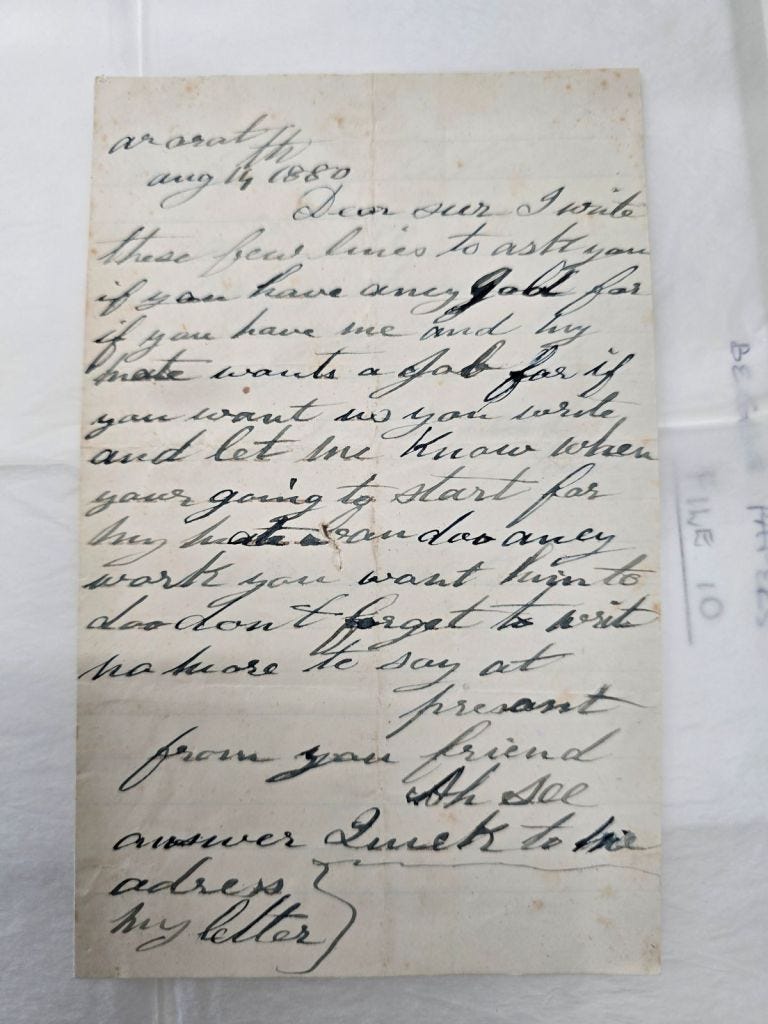 ararat
aug 14th 1880
Dear sur I write
these few lines to ask you
if you have aney Job for
if you have me and my
mate wants a Job for if
you want us you write
and let me know when
your going to start for
my mate can doo aney
work you want him to
doo don't forget to writ
no more to say at
presant
from you friend
Ah See
answer Quick to me
adress
my letter
BE PAPERS
FILE 10